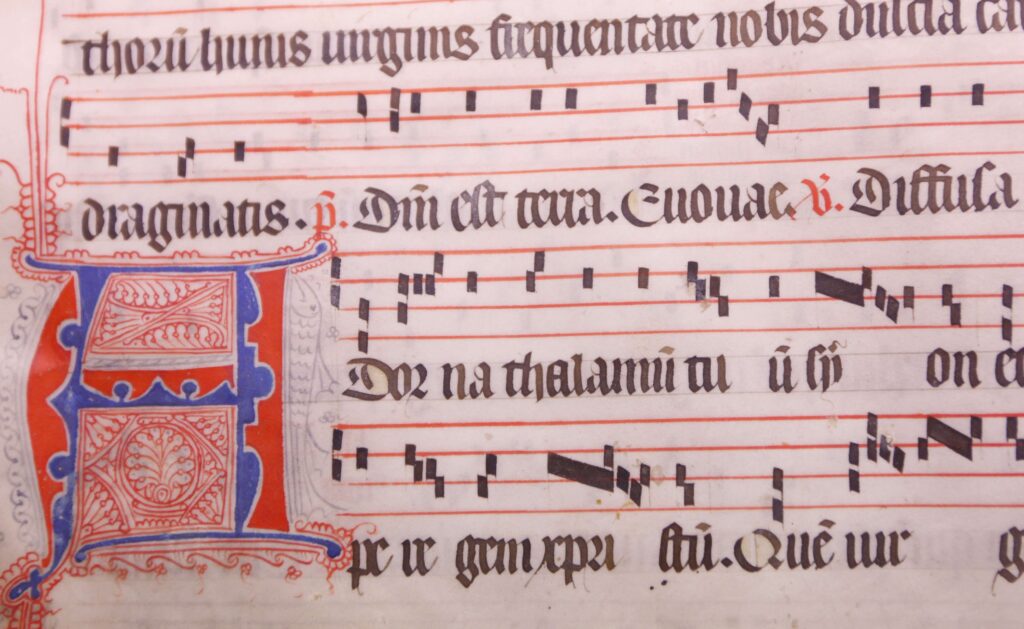 thorū huius uirginis frequentate nobis dulcia ca
draginatis. p̄. Dn̄i est terra. Euouae. v̄. Diffusa
ADor na thalamū tu ū sy on
pe re gem xpri stū. Quē uir g